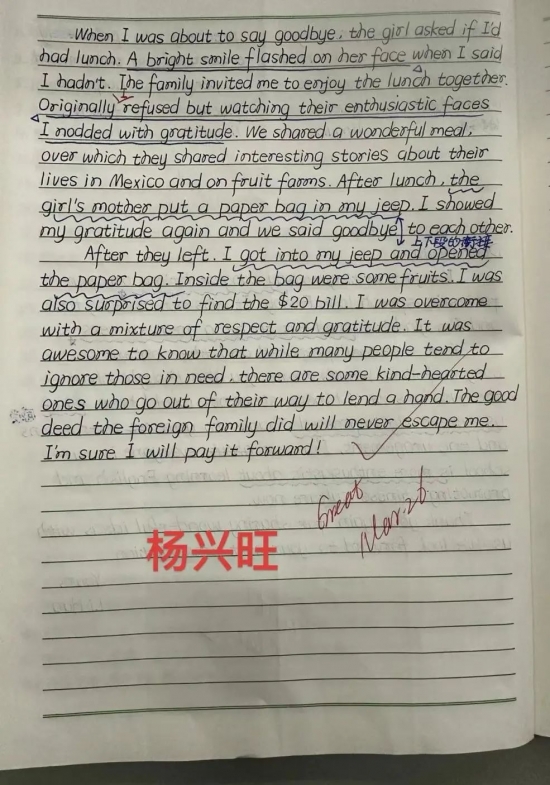 When I was about to say goodbye, the girl asked if I'd
had lunch. A bright smile flashed on her face when I said
I hadn't. The family invited me to enjoy the lunch together.
Originally I refused but watching their enthusiastic faces
I nodded with gratitude. We shared a wonderful meal,
over which they shared interesting stories about their
lives in Mexico and on fruit farms. After lunch, the
girl's mother put a paper bag in my jeep. I showed
my gratitude again and we said goodbye to each other.
上下段的衔接
After they left. I got into my jeep and opened
the paper bag. Inside the bag were some fruits. I was
also surprised to find the $20 bill. I was overcome
with a mixture of respect and gratitude. It was
awesome to know that while many people tend to
ignore those in need, there are some kind-hearted
ones who go out of their way to lend a hand. The good
deed the foreign family did will never escape me.
I'm sure I will pay it forward!
Great
Mar.26
杨兴旺